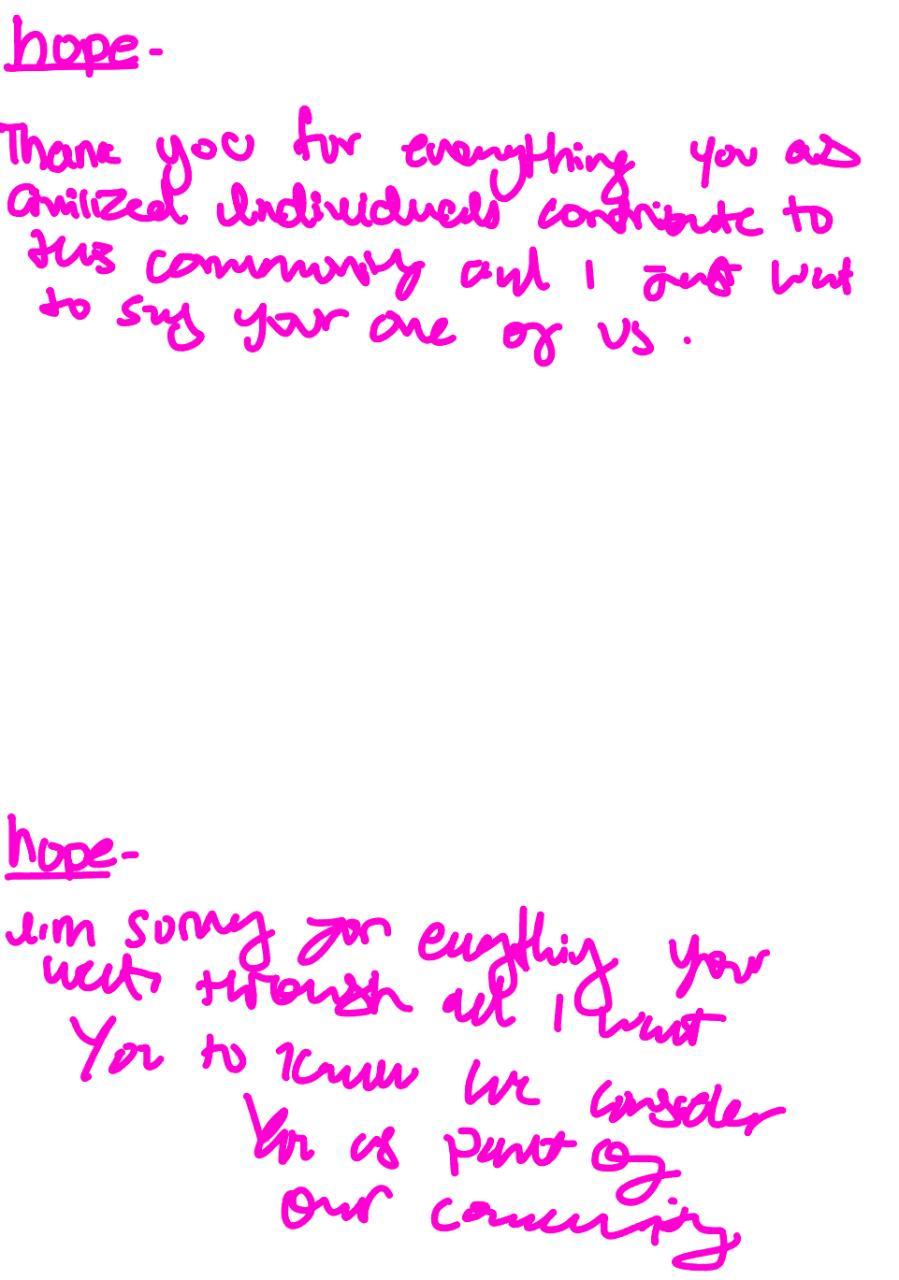 hope-
Thank you for everything you as
civilized individuals contribute to
this community and I just want
to say your one of us .
hope-
i'm sorry for everything your
went through and I want
You to know we consider
You as part of
our community